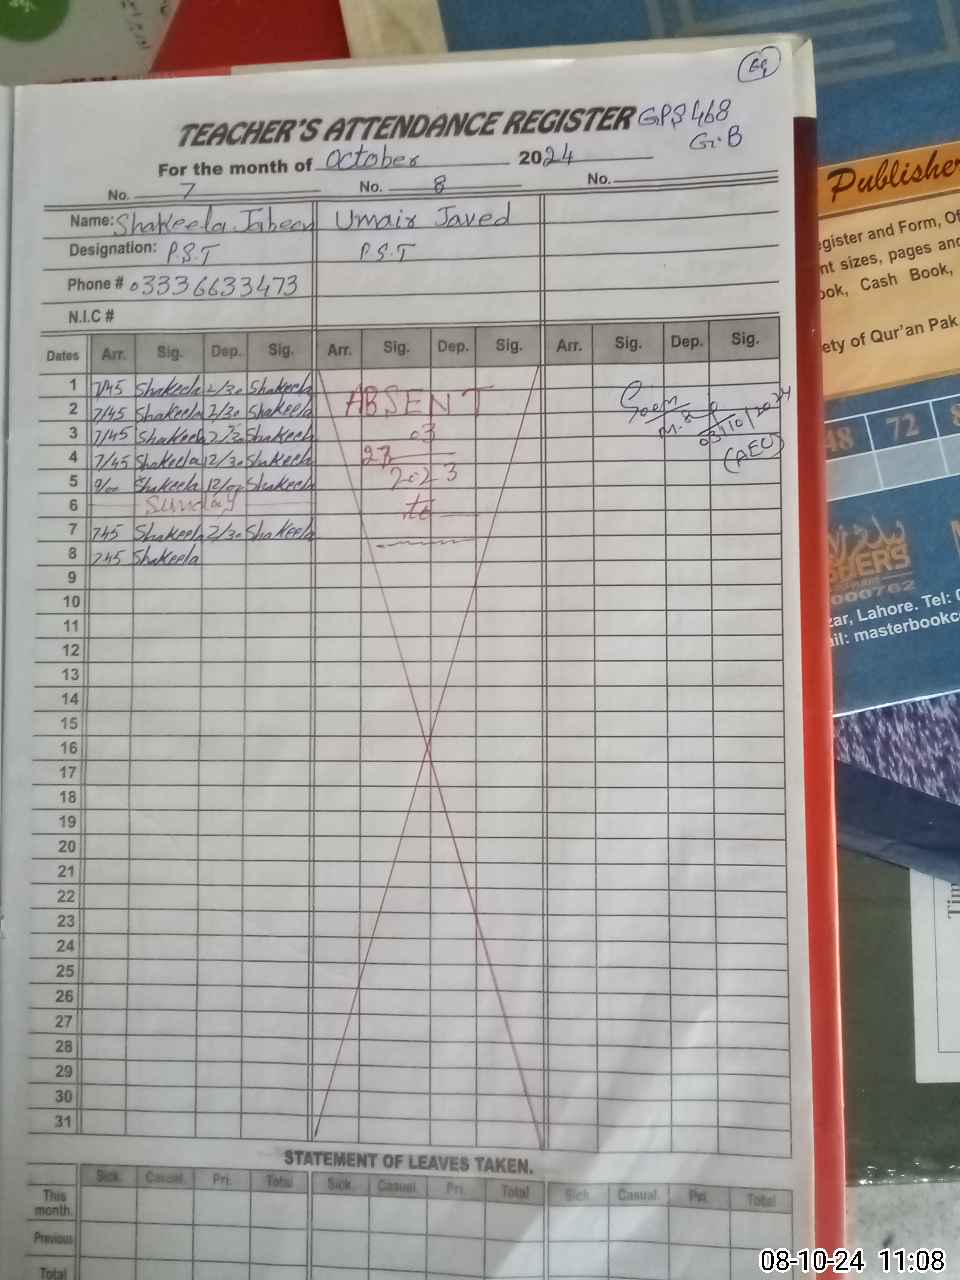 TEACHER'S ATTENDANCE REGISTER GPS 468
G.B
For the month of October 2024
No. 7 No. 8 No.
Name: Shakeela Jabeen Umair Javed
Designation: P.S.T P.S.T
Phone # 03336633473
N.I.C #
Dates Arr. Sig. Dep. Sig. Arr. Sig. Dep. Sig. Arr. Sig. Dep. Sig.
1 7/45 Shakeela 2/30 Shakeela
2 7/45 Shakeela 2/30 Shakeela ABSENT
3 7/45 Shakeela 2/30 Shakeela 03
4 7/45 Shakeela 12/30 Shakeela 27
5 9/00 Shakeela 12/00 Shakeela 2023
6 Sunday to
7 745 Shakeela 2/30 Shakeela
8 745 Shakeela
03/10/2024
(AEO)
9
10
11
12
13
14
15
16
17
18
19
20
21
22
23
24
25
26
27
28
29
30
31
STATEMENT OF LEAVES TAKEN.
Sick. Casual. Pri. Total Sick. Casual. Pri. Total Sick. Casual. Pri. Total
This
month.
Previous
Total
Publishe
egister and Form, Of
nt sizes, pages and
ook, Cash Book,
ety of Qur'an Pak
48 72 8
DERS
000762
zar, Lahore. Tel: 0
ail: masterbookc
08-10-24 11:08